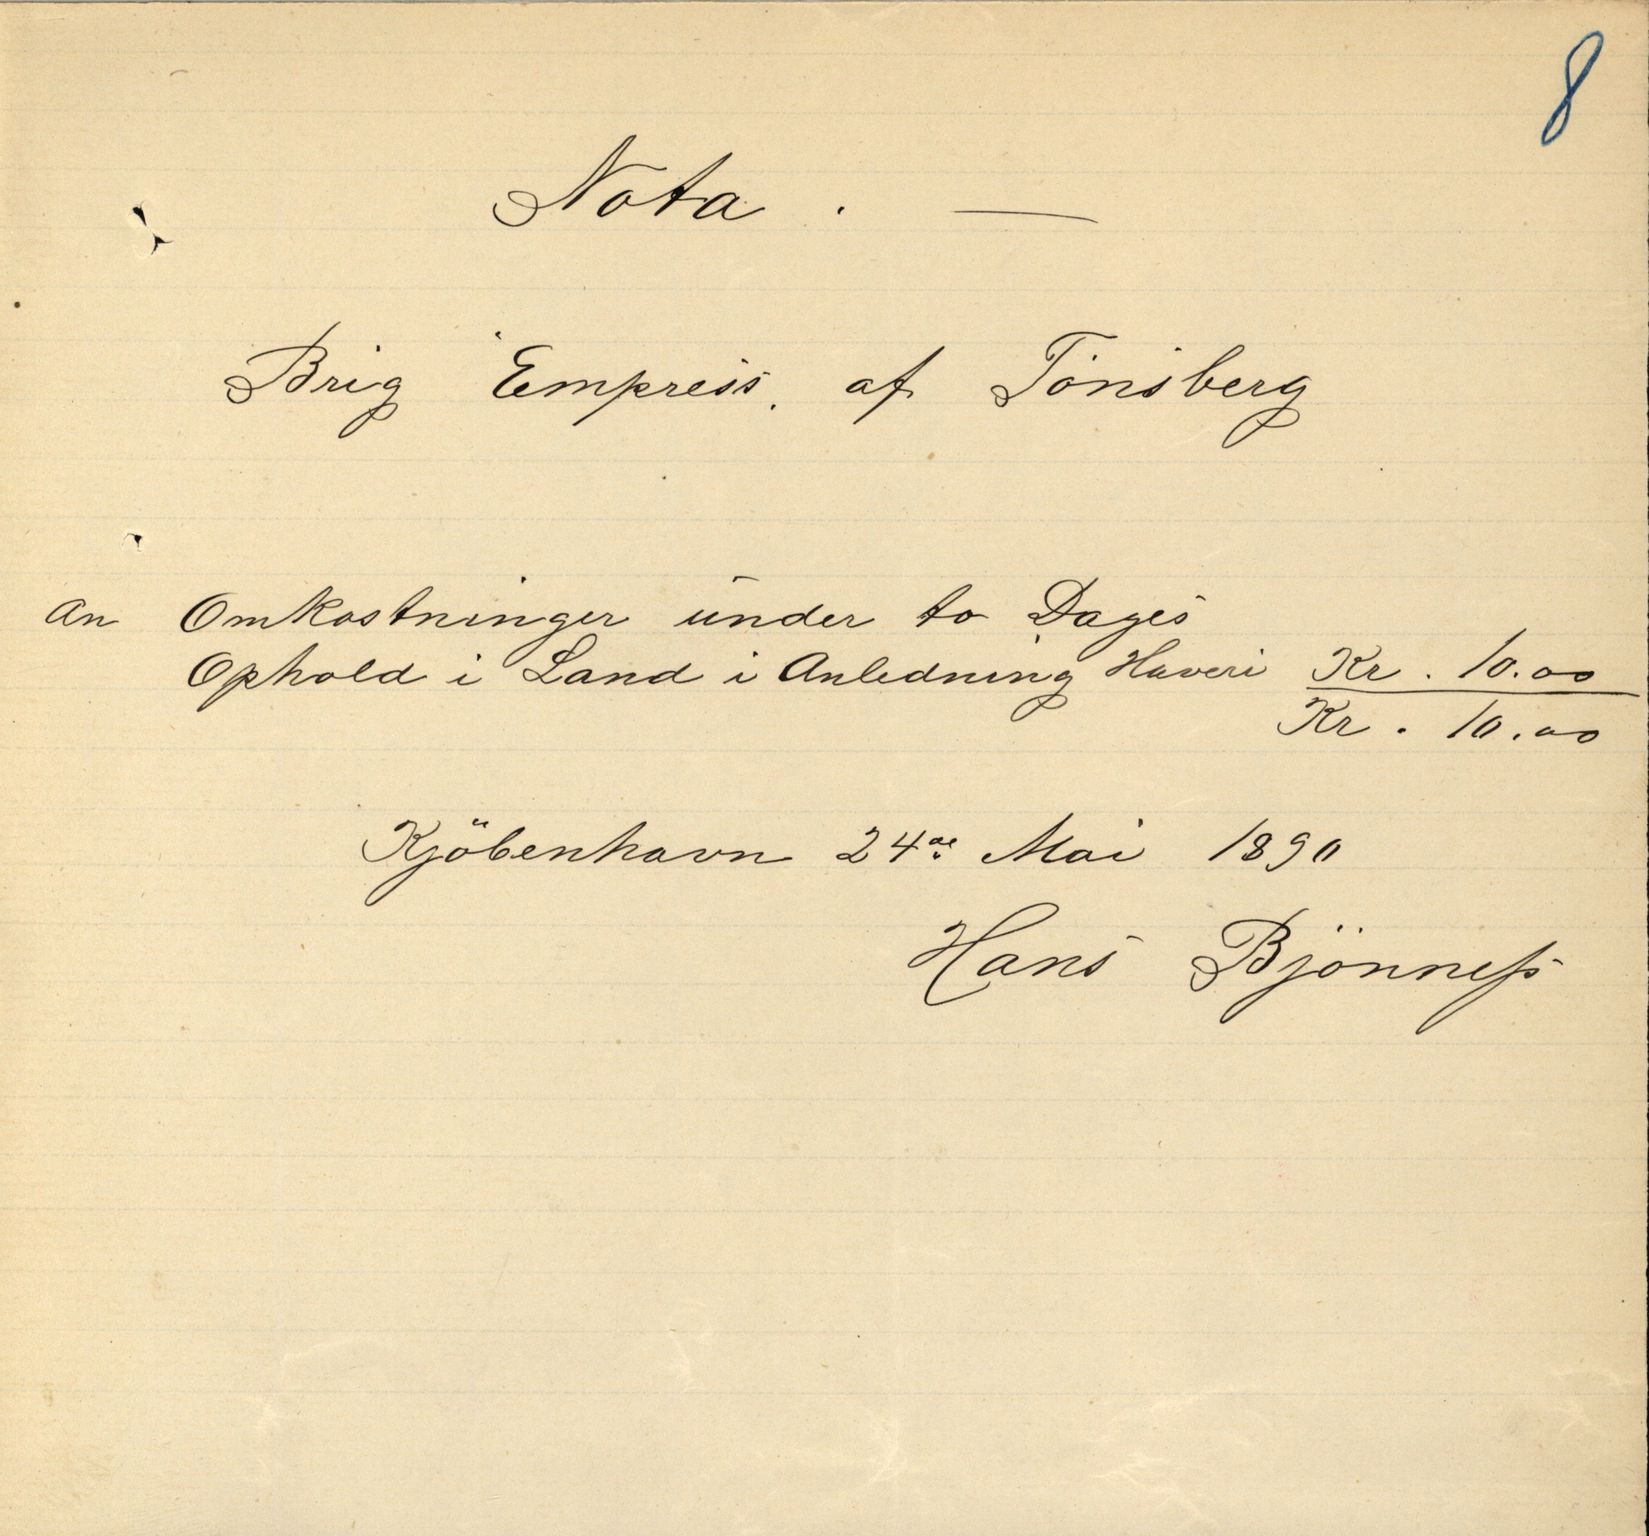 8
Nota. —
Brig Empress. af Tönsberg
An Omkostninger under to Dages
Ophold i Land i Anledning Haveri Kr. 10.00
Kr. 10.00
Kjöbenhavn 24de Mai 1890
Hans Bjönness